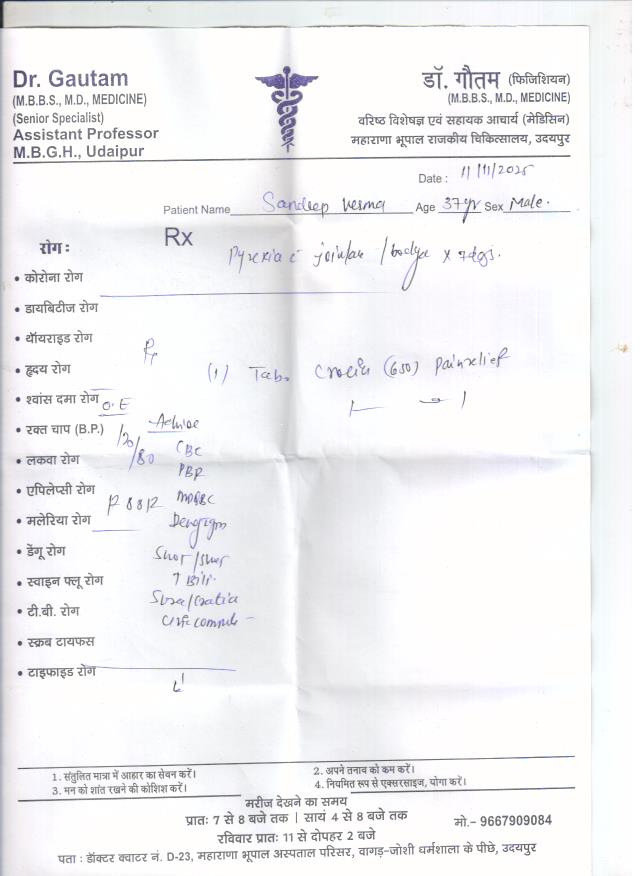 Dr. Gautam
(M.B.B.S., M.D., MEDICINE)
(Senior Specialist)
Assistant Professor
M.B.G.H., Udaipur
डॉ. गौतम (फिजिशियन)
(M.B.B.S., M.D., MEDICINE)
वरिष्ठ विशेषज्ञ एवं सहायक आचार्य (मेडिसिन)
महाराणा भूपाल राजकीय चिकित्सालय, उदयपुर
Date : 11/11/2025
Patient Name Sandeep Verma Age 37 yr Sex Male.
Rx
रोग :
Pyrexia c / x 7 dys.
• कोरोना रोग
• डायबिटीज रोग
• थॉयराइड रोग
• हृदय रोग
(1) Tab. Crocin (650) Pain relief
• श्वांस दमा रोग O.E
Advise
• रक्त चाप (B.P.) 120/80
CBC
• लकवा रोग
PBF
• एपिलेप्सी रोग
P 88
• मलेरिया रोग
• डेंगू रोग
SGOT/SGPT
• स्वाइन फ्लू रोग
• टी.बी. रोग
• स्क्रब टायफस
• टाइफाइड रोग
1. संतुलित मात्रा में आहार का सेवन करें।
2. अपने तनाव को कम करें।
3. मन को शांत रखने की कोशिश करें।
4. नियमित रूप से एक्सरसाइज, योगा करें।
मरीज देखने का समय
प्रातः 7 से 8 बजे तक | सायं 4 से 8 बजे तक
मो.- 9667909084
रविवार प्रातः 11 से दोपहर 2 बजे
पता : डॉक्टर क्वाटर नं. D-23, महाराणा भूपाल अस्पताल परिसर, वागड़-जोशी धर्मशाला के पीछे, उदयपुर